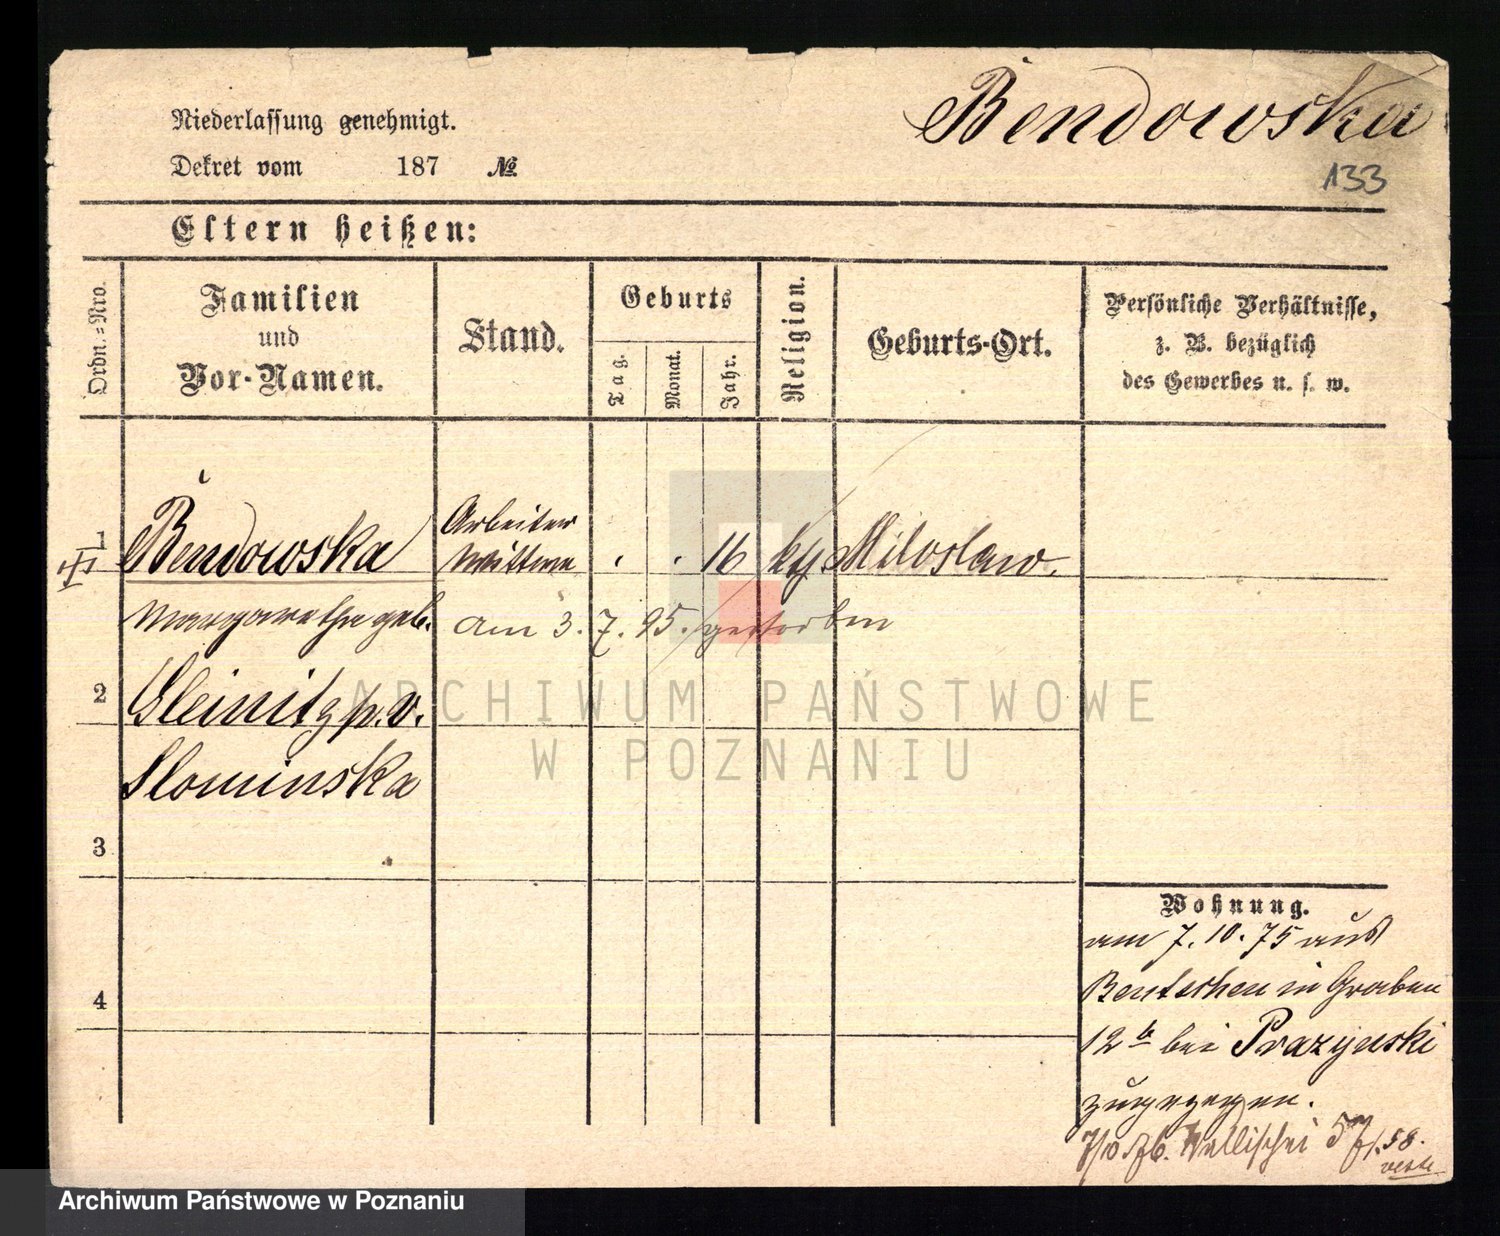 Bendowska
133
Niederlassung genehmigt.
Dekret vom 187 №
Eltern heißen:
Ordn.=Nro.
Familien
und
Vor-Namen.
Stand.
Geburts
Tag.
Monat.
Jahr.
Religion.
Geburts-Ort.
Persönliche Verhältnisse,
z. B. bezüglich
des Gewerbes u. s. w.
1
III
Bendowska
Arbeiter
Wittwe
16
kth
Miloslaw.
Margarethe geb.
am 3. 7. 95. gestorben
2
Gleinitz p. v.
Slominska
3
4
Wohnung.
am 7. 10. 75 aus
Bentschen in Graben
12 b bei Prazynski
zugezogen.
7/10 Wallischei 57/58.
ARCHIWUM PAŃSTWOWE
W POZNANIU
Archiwum Państwowe w Poznaniu